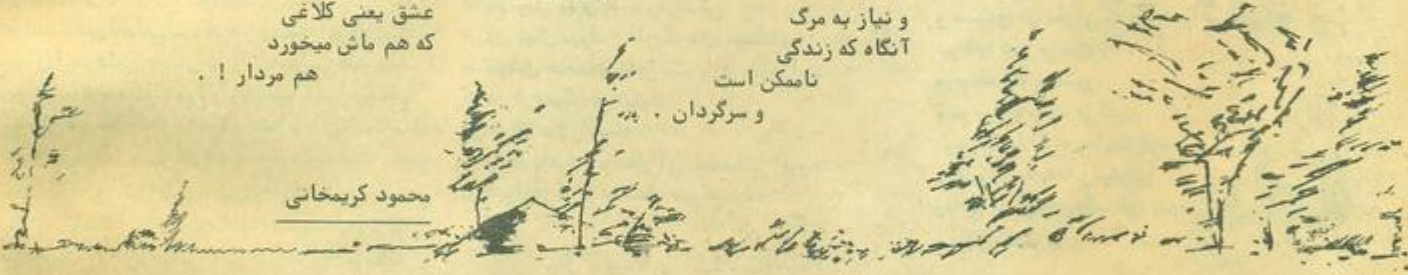 و نیاز به مرگ
آنگاه که زندگی
ناممکن است
و سرگردان .
عشق یعنی کلاغی
که هم ماش میخورد
هم مردار ! .
محمود کریمخانی